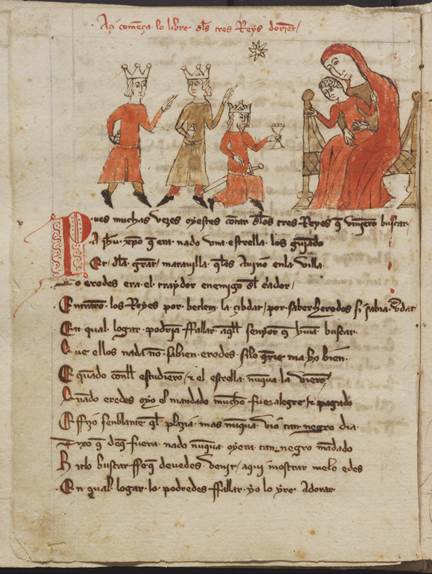 Açi comença lo libre dels tres Reys dorient
Pues muchas vezes oyestes contar de los tres Reyes q̃ vinierõ buscar
A ihũ xp̃o q̃ era nado vna estrella los guiado
Et de la grant marauilla q̃ les auino en la villa
Do erodes era el traydor enemigo del cador
Entraro los Reyes por betlem la çibdat por saber herodes si sabia verdat
En qual logar podrian ffallar aq̃ll senyor q̃ hiuan buscar
Que ellos nada no sabien erodes silo q̃rie mal o bien
E quando conell estudiero τ el estrella nũqua la viero
Quando erodes oyo el mandado mucho fue alegre τ pagado
E ffizo senblante q̃l plazia mas nũqua vio tan negro dia
Dixo q̃ de q̃ fuera nado nũqua oyera tan negro mãdado
Hitlo buscar ffe q̃ deuedes venit aqui mostrar melo edes
En qual logar lo podredes ffallar yo lo yre adorar